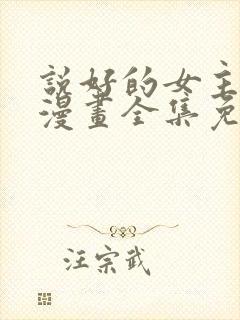 說好的女主
漫畫全集免
汪宗武